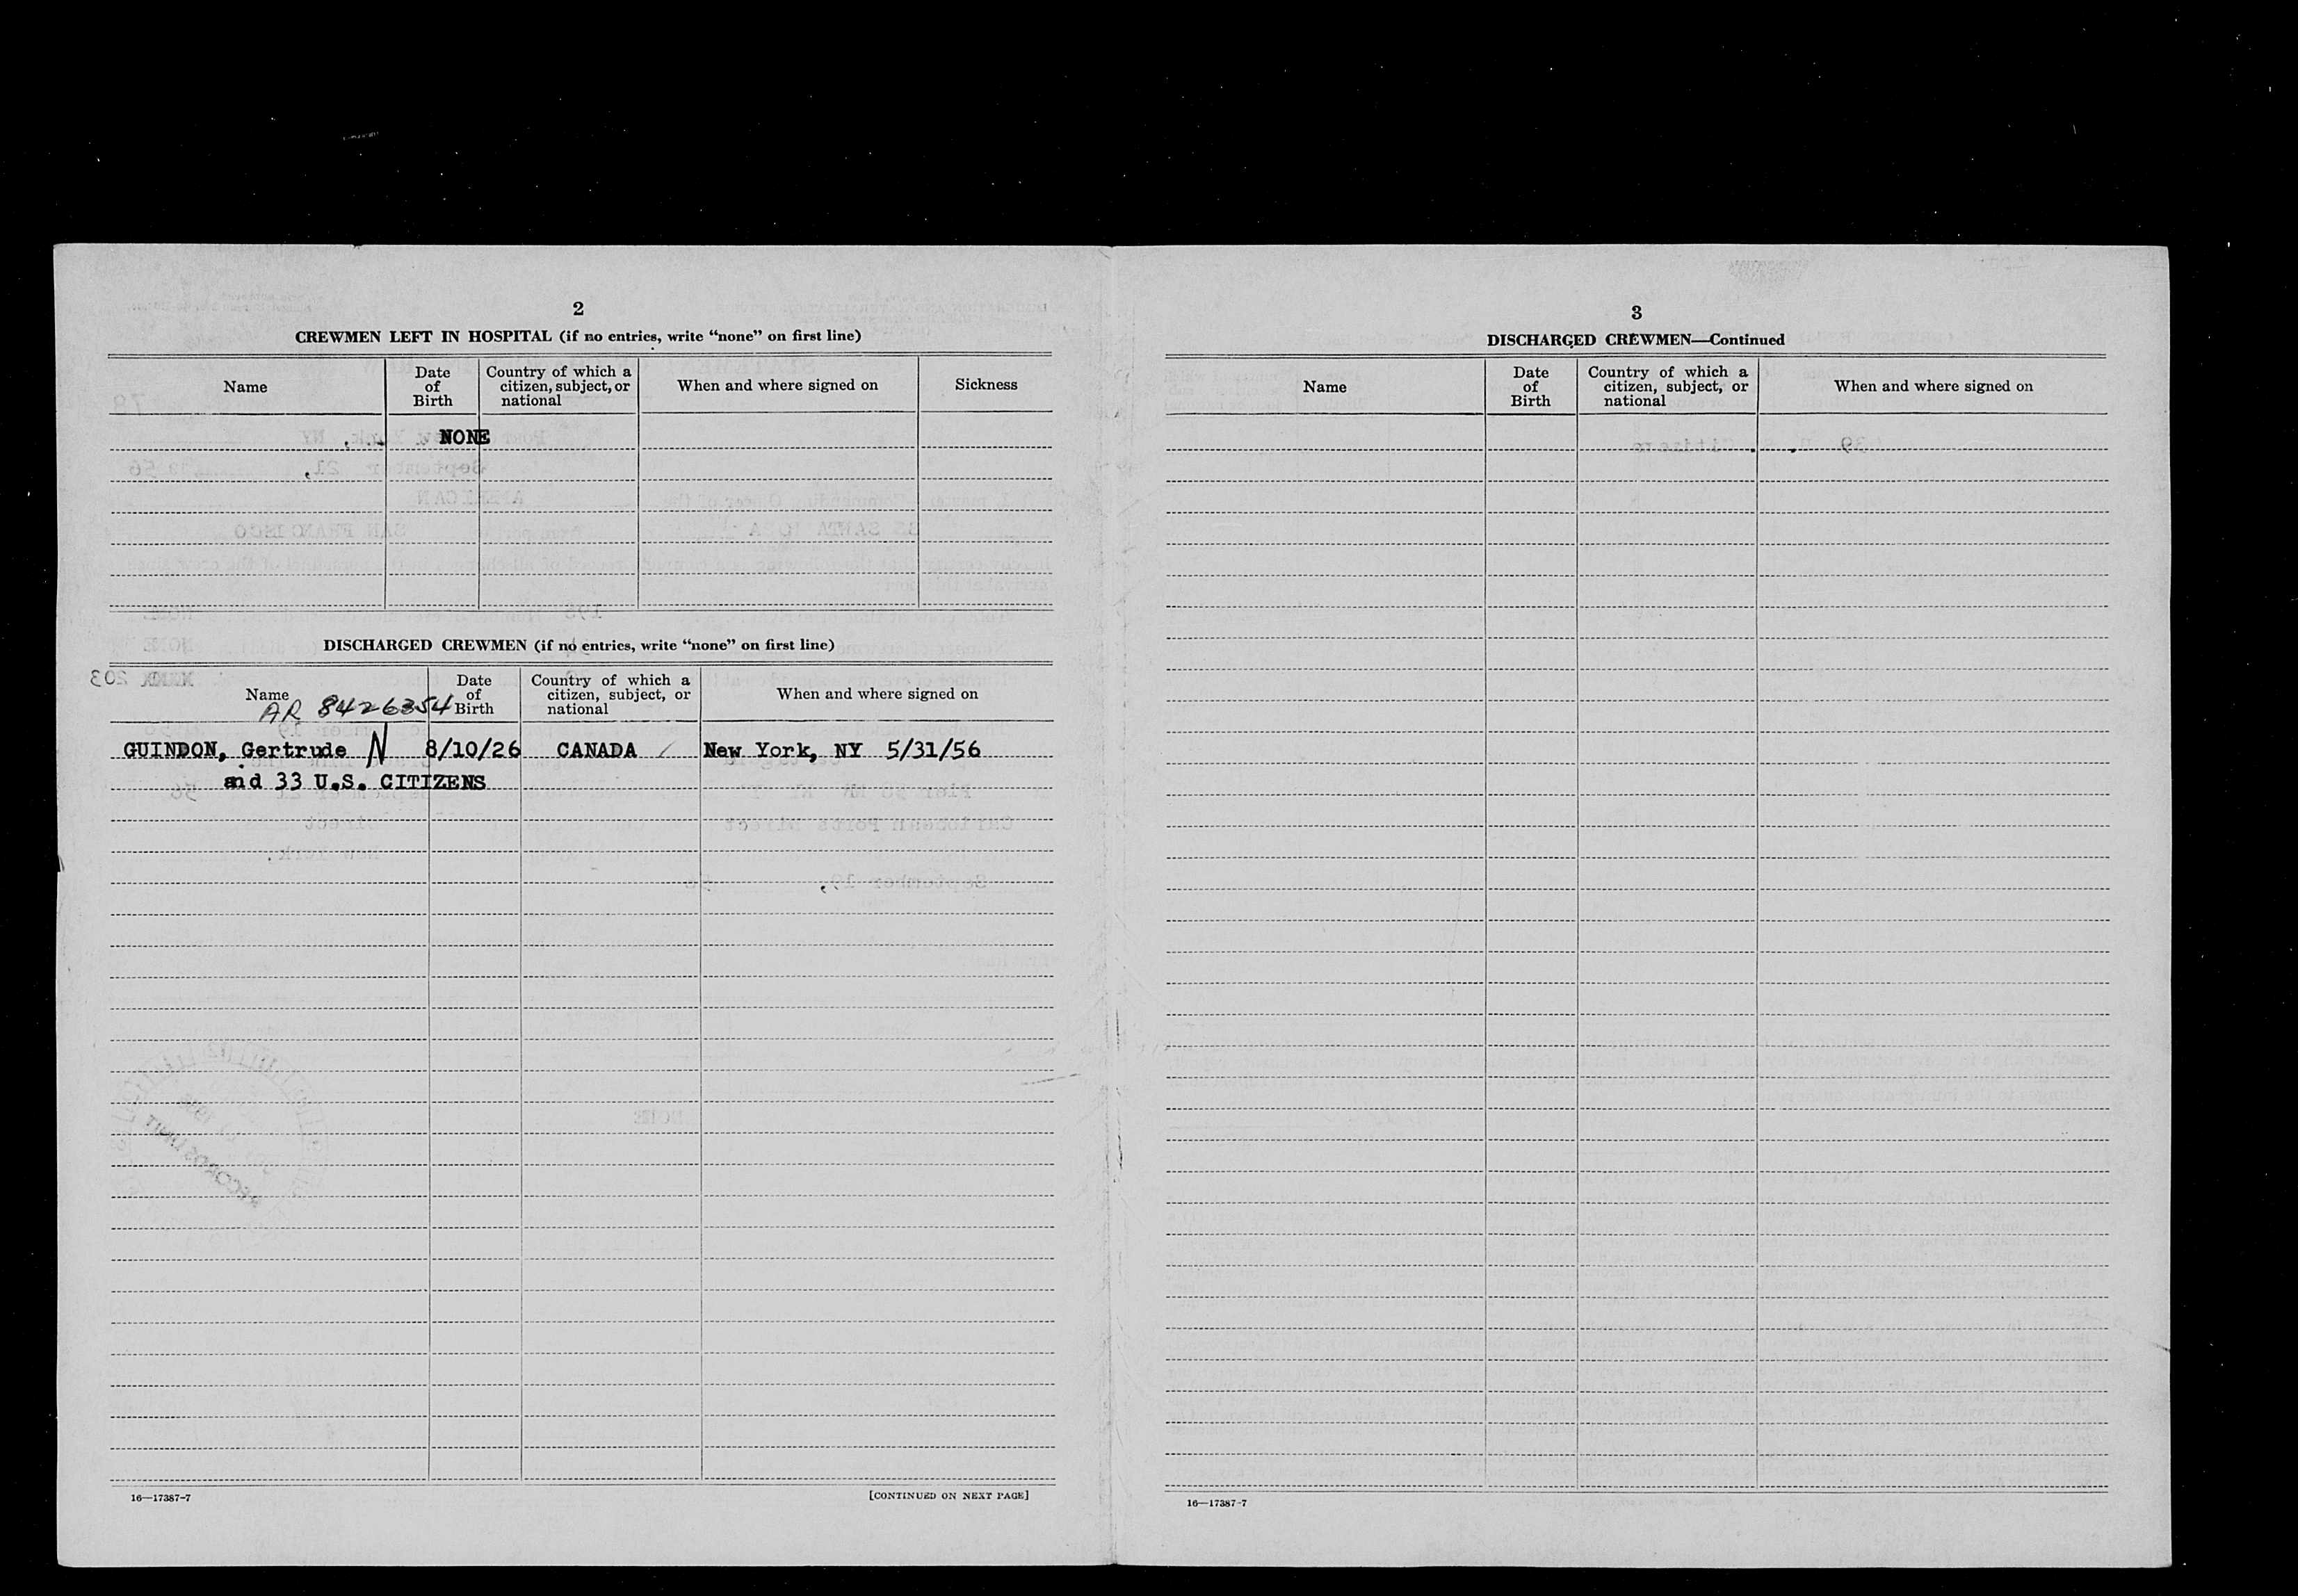 2
CREWMEN LEFT IN HOSPITAL (if no entries, write “none” on first line)
Name
Date of Birth
Country of which a citizen, subject, or national
When and where signed on
Sickness
NONE
DISCHARGED CREWMEN (if no entries, write “none” on first line)
Name
Date of Birth
Country of which a citizen, subject, or national
When and where signed on
AR 8426354
GUINDON, Gertrude N 8/10/26 CANADA New York, NY 5/31/56
and 33 U.S. CITIZENS
16—17387-7
[CONTINUED ON NEXT PAGE]
3
DISCHARGED CREWMEN—Continued
Name
Date of Birth
Country of which a citizen, subject, or national
When and where signed on
16—17387-7